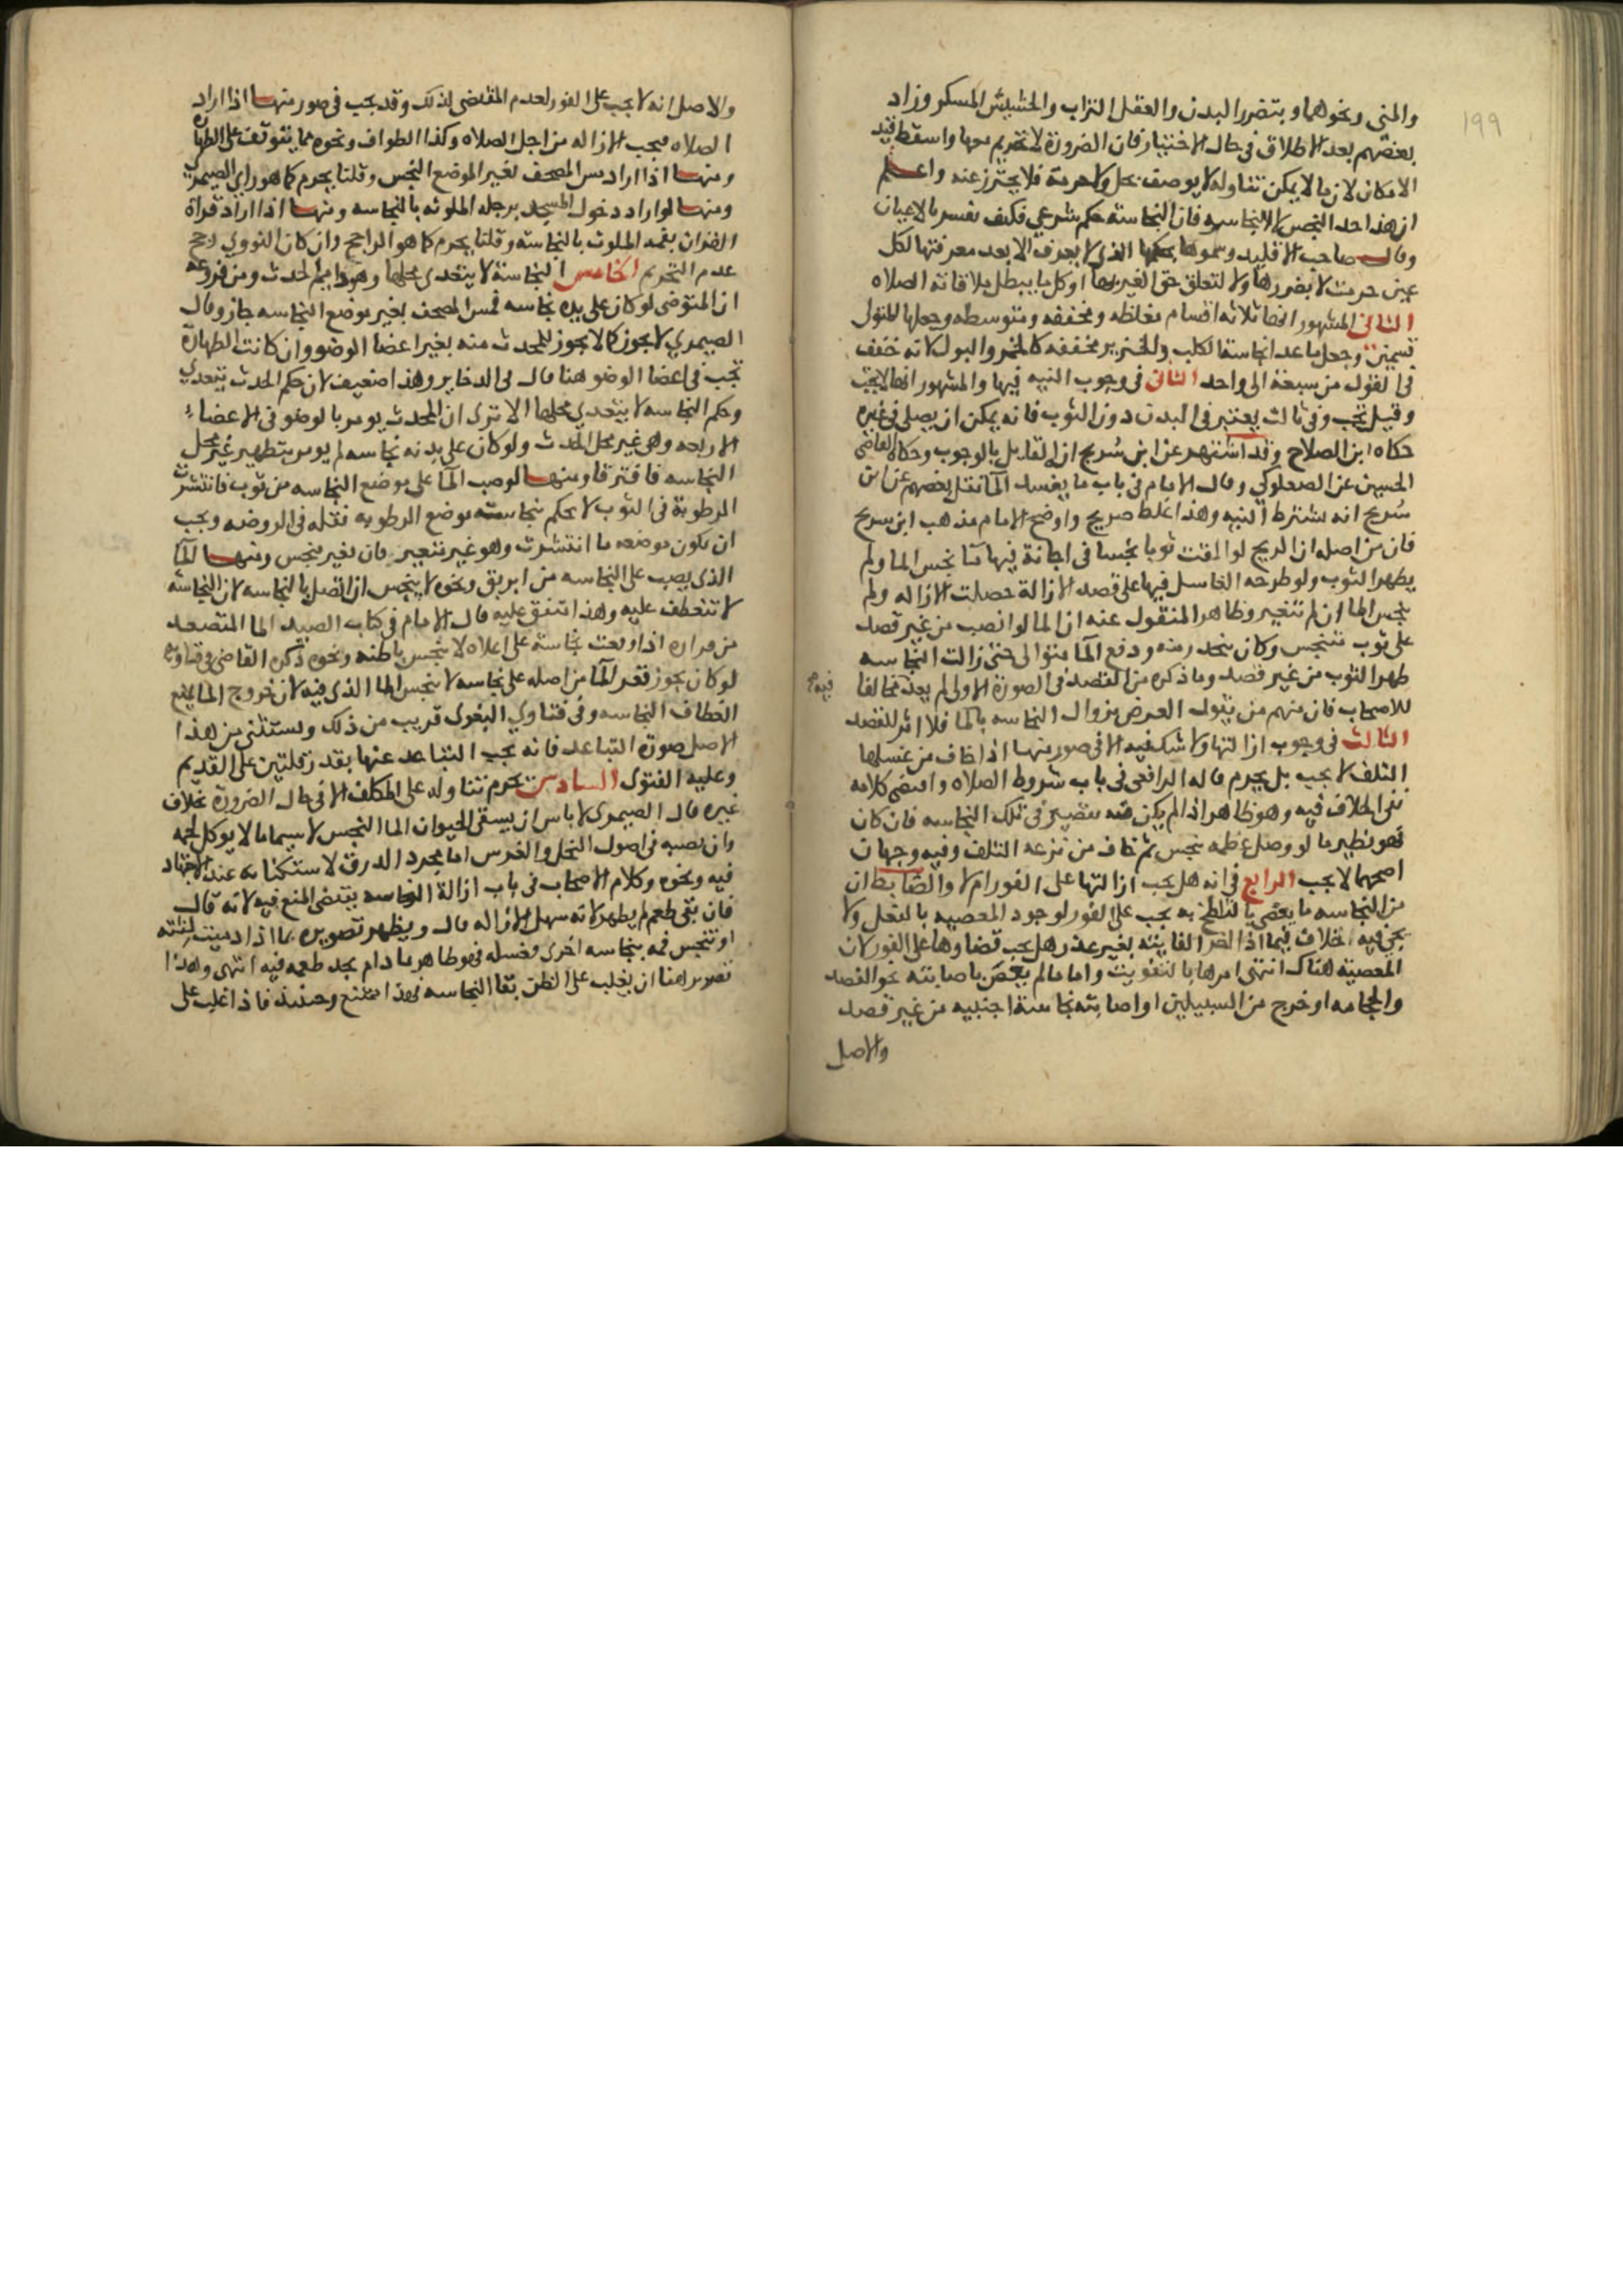 ١٩٩
والمني ونحوهما وبتضرر البدن والعقل التراب والحشيش المسكر وزاد
بعضهم بعد الاطلاق في حال الاختيار فان الضرورة لا تحريم معها واسقط قيد
الامكان لان ما لا يمكن تناوله لا يوصف بحل ولا حرمة فلا يحترز عنه واعلم
ان هذا حد النجس لا النجاسه فان النجاسة حكم شرعي فكيف تفسر بالاعيان
وقال صاحب الاقليد وسموها بحكمها الذي لا يعرف الا بعد معرفتها لكل
عين حرمت لا بضررها ولا لتعلق حق الغير بها او كل ما يبطل ملاقاته الصلاه
الثاني المشهور انها ثلاثه اقسام مغلظه ومخففه ومتوسطه وجعلها المتولي
قسمين وجعل ما عدا نجاسة الكلب والخنزير مخففه كالخمر والبول لانه خفف
في الغول من سبعة الى واحد الثاني في وجوب النيه فيها والمشهور انها لا تجب
وقيل تجب وفي ثالث يعتبر في البدن دون الثوب فانه يمكن ان يصلي في غيره
حكاه ابن الصلاح وقد اشتهر عن ابن سُريج ان القايل بالوجوب وحكاه القاضي
الحسين عن الصعلوكي وقال الامام في باب ما يفسد الما نقل بعضهم عن ابن
سُريج انه يشترط النيه وهذا غلط صريح واوضح الامام مذهب ابن سريج
فان من اصله ان الريح لو القت ثوبا نجسا في اجانة فيها ما نجس الما ولم
يطهر الثوب ولو طرحه الغاسل فيها على قصد الازالة حصلت الازاله ولم
ينجس الما ان لم تتغير وظاهر المنقول عنه ان الما لو انصب من غير قصد
على ثوب متنجس وكان ينحدر منه ودفع الما متوالي حتى زالت النجاسه
طهر الثوب من غير قصد وما ذكره من القصد في الصورة الاولى لم يعد مخالفا فيه
للاصحاب فان منهم من يقول الغرض زوال النجاسه بالما فلا اثر للقصد
الثالث في وجوب ازالتها ولا شك فيه الا في صور منها اذا خاف من غسلها
التلف لا يجب بل يحرم قاله الرافعي في باب شروط الصلاه واقتضى كلامه
نفي الخلاف فيه وهو ظاهر اذا لم يكن منه تقصير في تلك النجاسه فان كان
فهو نظير ما لو وصل عظمه بنجس ثم خاف من نزعه التلف وفيه وجهان
اصحهما لا يجب الرابع في انه هل يجب ازالتها على الفور ام لا والضابط ان
من النجاسه ما يعصي بالتلطخ به يجب على الفور لوجود المعصيه بالفعل ولا
يجي فيه الخلاف فيما اذا اخر الفايته بغير عذر هل يجب قضاوها على الفور لان
المعصية هناك انتهى امرها بالتفويت واما ما لم يعص باصابته نحو الفصد
والحجامه او خرج من السبيلين او اصابته نجاسة اجنبيه من غير قصد
والاصل
والاصل انه لا يجب على الفور لعدم المقتضى لذلك وقد يجب في صور منها اذا اراد
الصلاه فيجب الازاله من اجل الصلاه وكذا الطواف ونحوه مما يتوقف على الطهارة
ومنها اذا اراد مس المصحف لغير الموضع النجس وقلنا يحرم كما هو راي الصيمري
ومنها لو اراد دخول المسجد برجله الملوثه بالنجاسه ومنها اذا اراد قراة
القران بفمه الملوث بالنجاسه وقلنا يحرم كما هو الراجح وان كان النووي رجح
عدم التحريم الخامس النجاسة لا يتعدى محلها وهو دايم الحدث ومن فروعه
ان المتوضي لو كان على يده نجاسه فمس المصحف بغير موضع النجاسه جاز وقال
الصيمري لا يجوز كما لا يجوز للمحدث مسه بغير اعضا الوضو وان كانت الطهارة
تجب في اعضا الوضو هنا قال في الدخاير وهذا ضعيف لان حكم الحدث يتعدي
وحكم النجاسه لا يتعدي محلها الا ترى ان المحدث يومر بالوضو في الاعضاء
الاربعه وهي غير محل الحدث ولو كان على بدنه نجاسه لم يومر بتطهير غير محل
النجاسه فافترقا ومنها لو صب الما على موضع النجاسه من ثوب فانتشرت
الرطوبة في الثوب لا يحكم بنجاسة موضع الرطوبه نقله في الروضه ويجب
ان يكون موضعه ما انتشرت وهو غير متغير فان تغير ينجس ومنها الما
الذي يصب على النجاسه من ابريق ونحوه لا ينجس ان اتصل بالنجاسه لان النجاسة
لا تنعطف عليه وهذا متفق عليه قال الامام في كتاب الصيد الما المتصعد
من فواره اذا وقعت نجاسة على اعلاه لا ينجس باطنه ونحوه ذكره القاضي في فتاويه
لو كان بجوز فقعر الما من اصله على نجاسه لا ينجس الما الذي فيه لان خروج الما يمنع
انعطاف النجاسه وفي فتاوي البغوي قريب من ذلك ويستثنى من هذا
الاصل صورة التباعد فانه يجب التباعد عنها بقدر قلتين على القديم
وعليه الفتوى السادس تحرم تناوله على المكلف الا في حال الضرورة بخلاف
غيره قال الصيمري لا باس ان يسقى الحيوان الما النجس لا سيما ما لا يوكل لحمه
وان يصبه في اصول النخل والغرس اما بمجرد الذوق لاستكشافه عند الاجتهاد
فيه ونحوه وكلام الاصحاب في باب ازالة النجاسه يقتضي المنع فيه لانه قال
فان بقي طعم لم يطهر لانه سهل الازاله قال ويظهر تصويره بما اذا دميت لثته
او تنجس فمه بنجاسه اخرى فغسله فهو طاهر ما دام يجد طعمه فيه انتهى وهذا
تصويرا هنا ان يغلب على الظن بقا النجاسه فهذا ممتنع وحينئذ فاذا غلب على